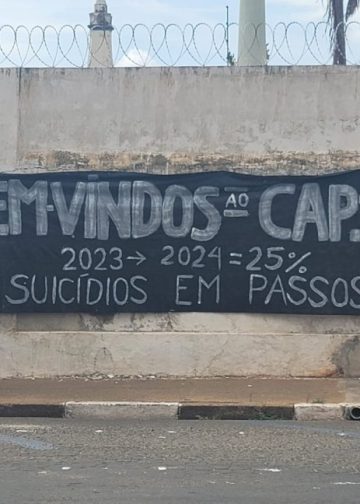 EM-VINDOS AO CAP
2023→2024=25%
SUICÍDIOS EM PASSOS